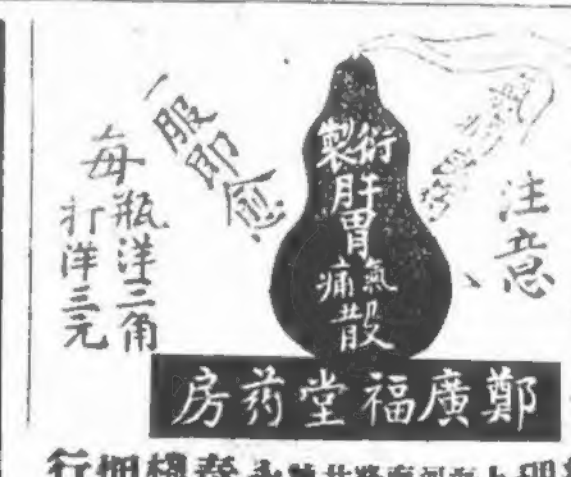 注意
衍製
肝胃
氣痛
散
一服即愈
每瓶洋三角
打洋三元
鄭廣福堂药房